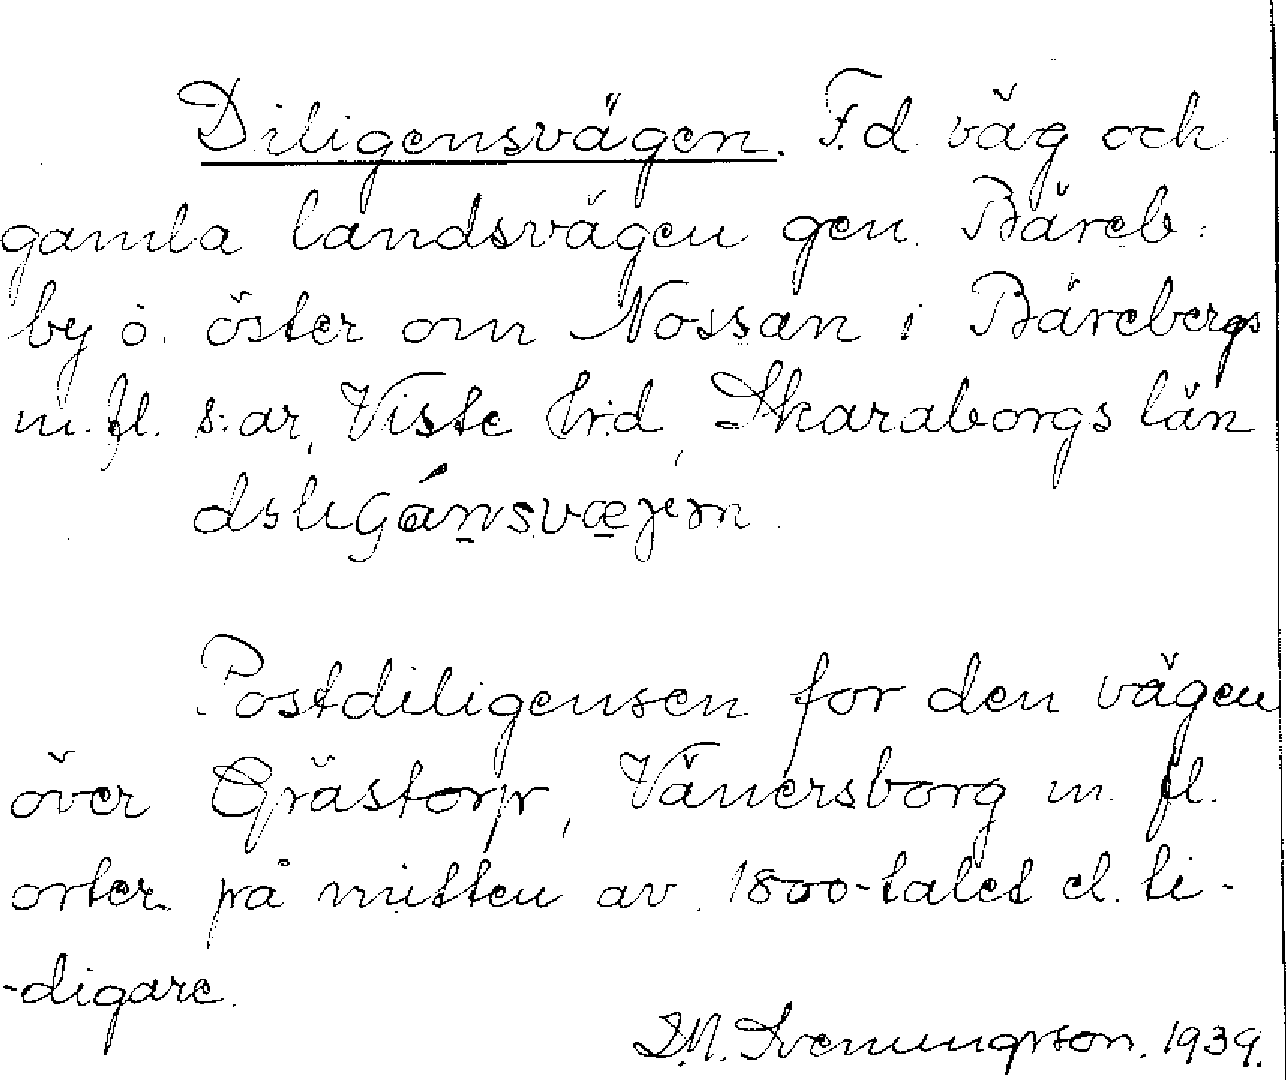 Diligensvägen. F.d. väg och
gamla landsvägen gen. Bäreb.
by o. öster om Nossan i Bärebergs
m. fl. s:ar, Viste hrd, Skaraborgs län
Postdiligensen for den vägen
över Grästorp, Vänersborg m. fl.
orter på mitten av 1800-talet el. ti-
-digare.
Svenungsson. 1939.